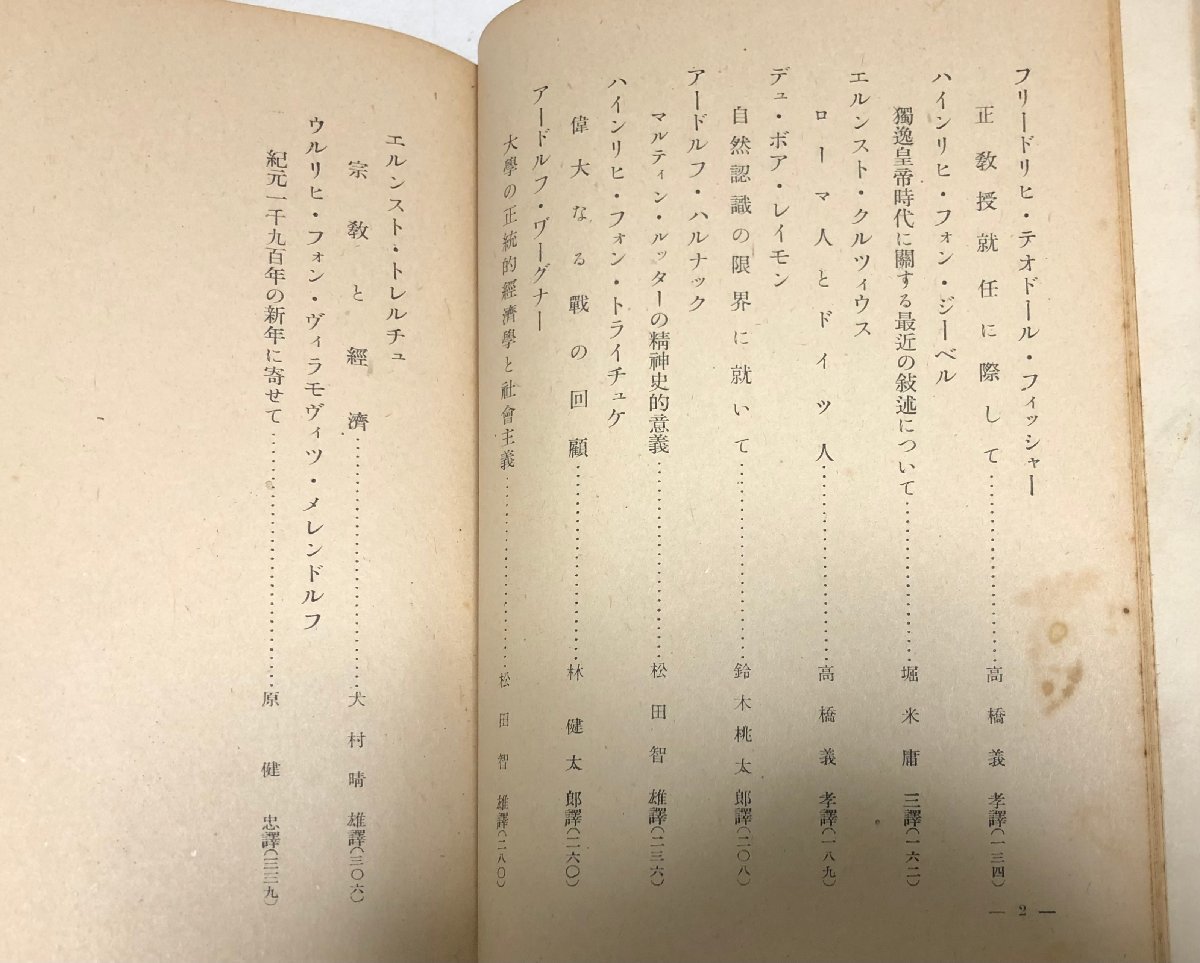 フリードリヒ・テオドール・フィッシャー
正教授就任に際して……………………高橋義孝譯(一三四)
ハインリヒ・フォン・ジーベル
獨逸皇帝時代に關する最近の敍述について……………………堀米庸三譯(一六二)
エルンスト・クルツィウス
ローマ人とドイツ人……………………高橋義孝譯(一八九)
デュ・ボア・レイモン
自然認識の限界に就いて……………………鈴木桃太郎譯(二〇八)
アードルフ・ハルナック
マルティン・ルッターの精神史的意義……………………松田智雄譯(二三六)
ハインリヒ・フォン・トライチュケ
偉大なる戰の回顧……………………林健太郎譯(二六〇)
アードルフ・ヴーグナー
大學の正統的經濟學と社會主義……………………松田智雄譯(二八〇)
— 2 —
エルンスト・トレルチュ
宗敎と經濟……………………大村晴雄譯(三〇六)
ウルリヒ・フォン・ヴィラモヴィツ・メレンドルフ
紀元一千九百年の新年に寄せて……………………原健忠譯(三三九)